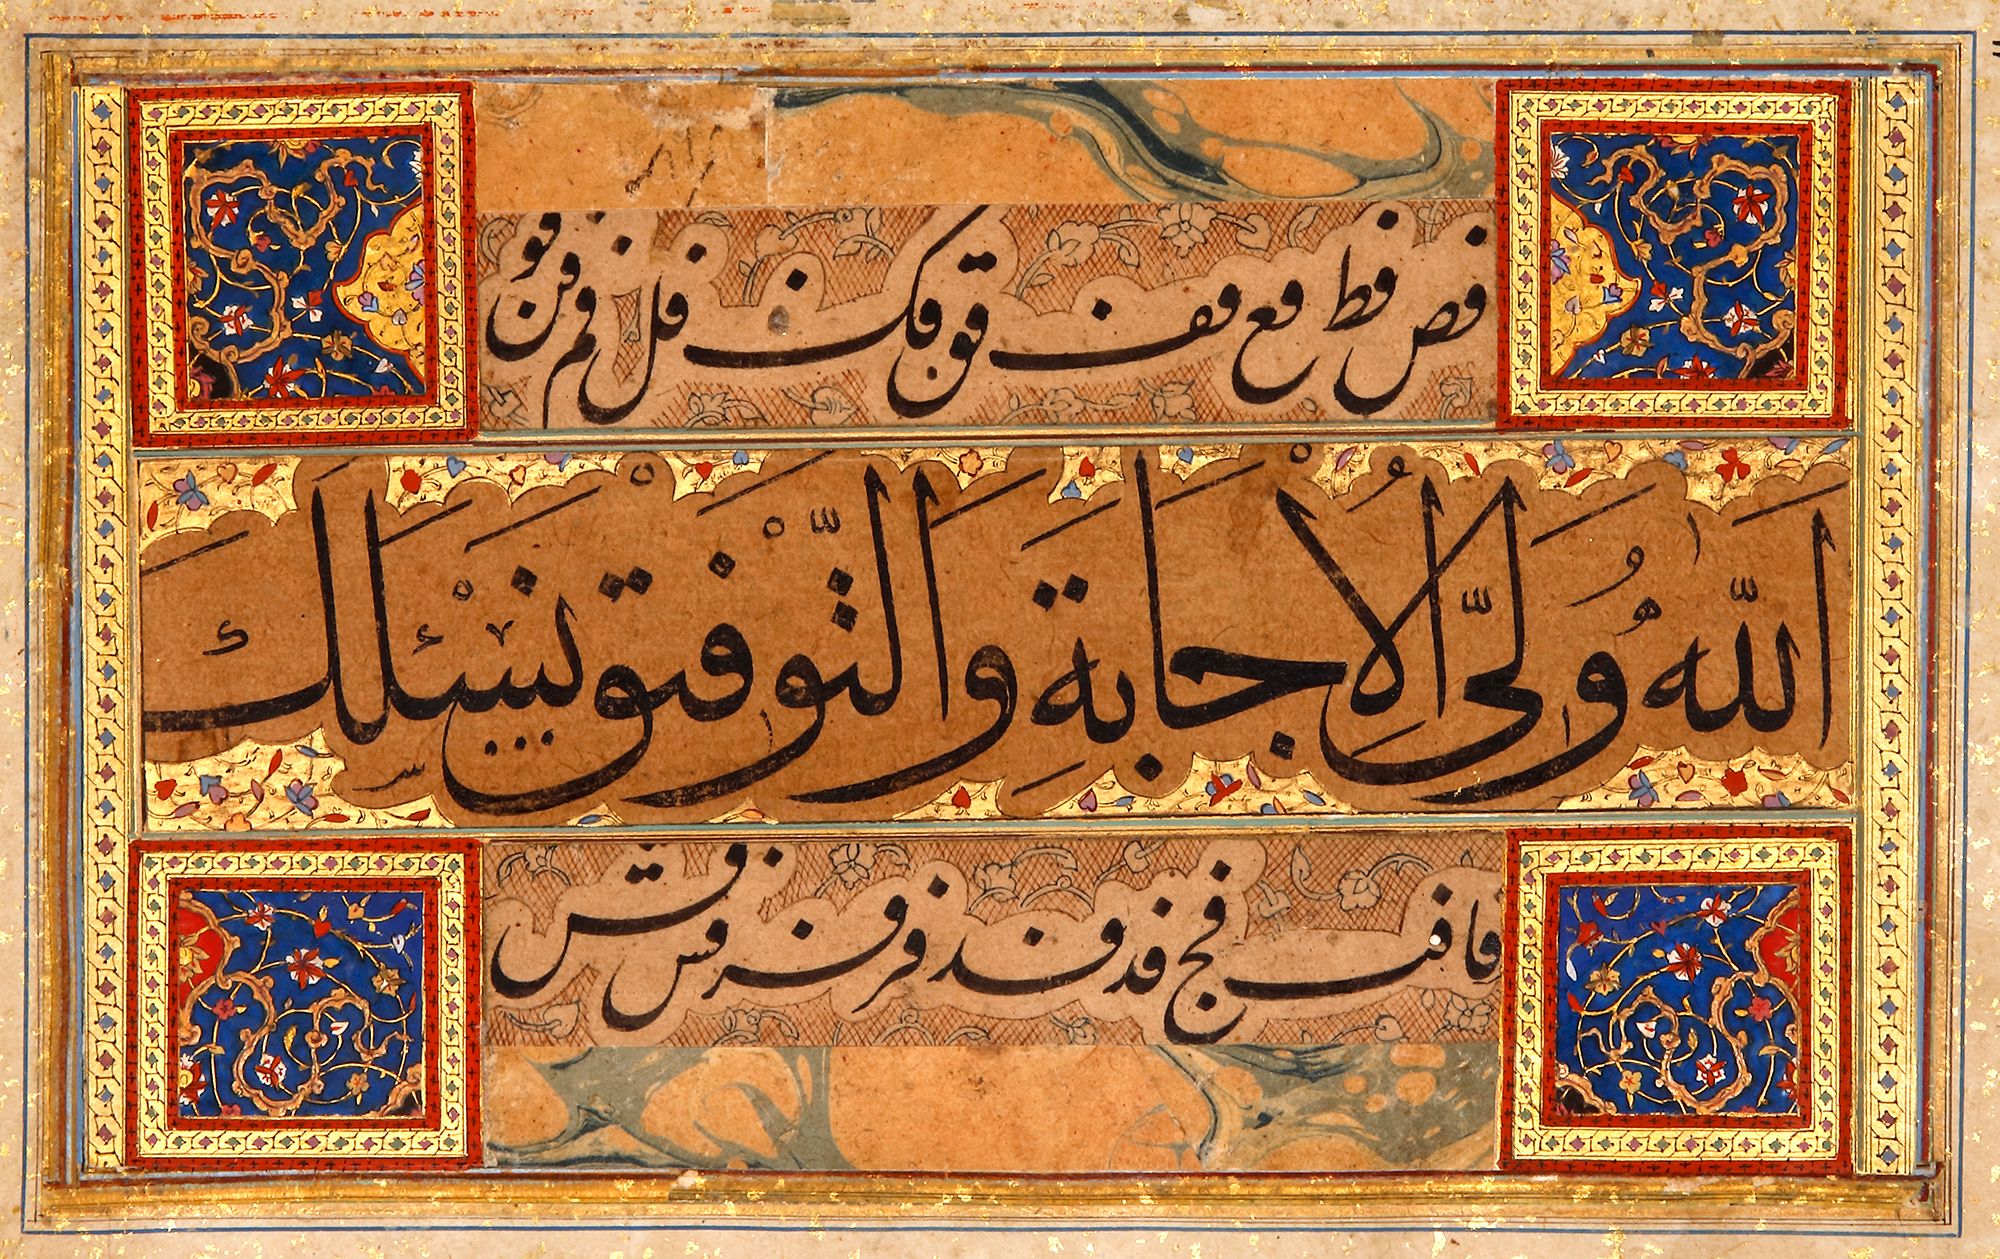 فص فط فع فف فق فك فل فم فن فو
اللّٰه وَلىّ الاِجابةِ وَالتّوْفيق نسْئلك
فا فب فج فد فد فر فر فس فس